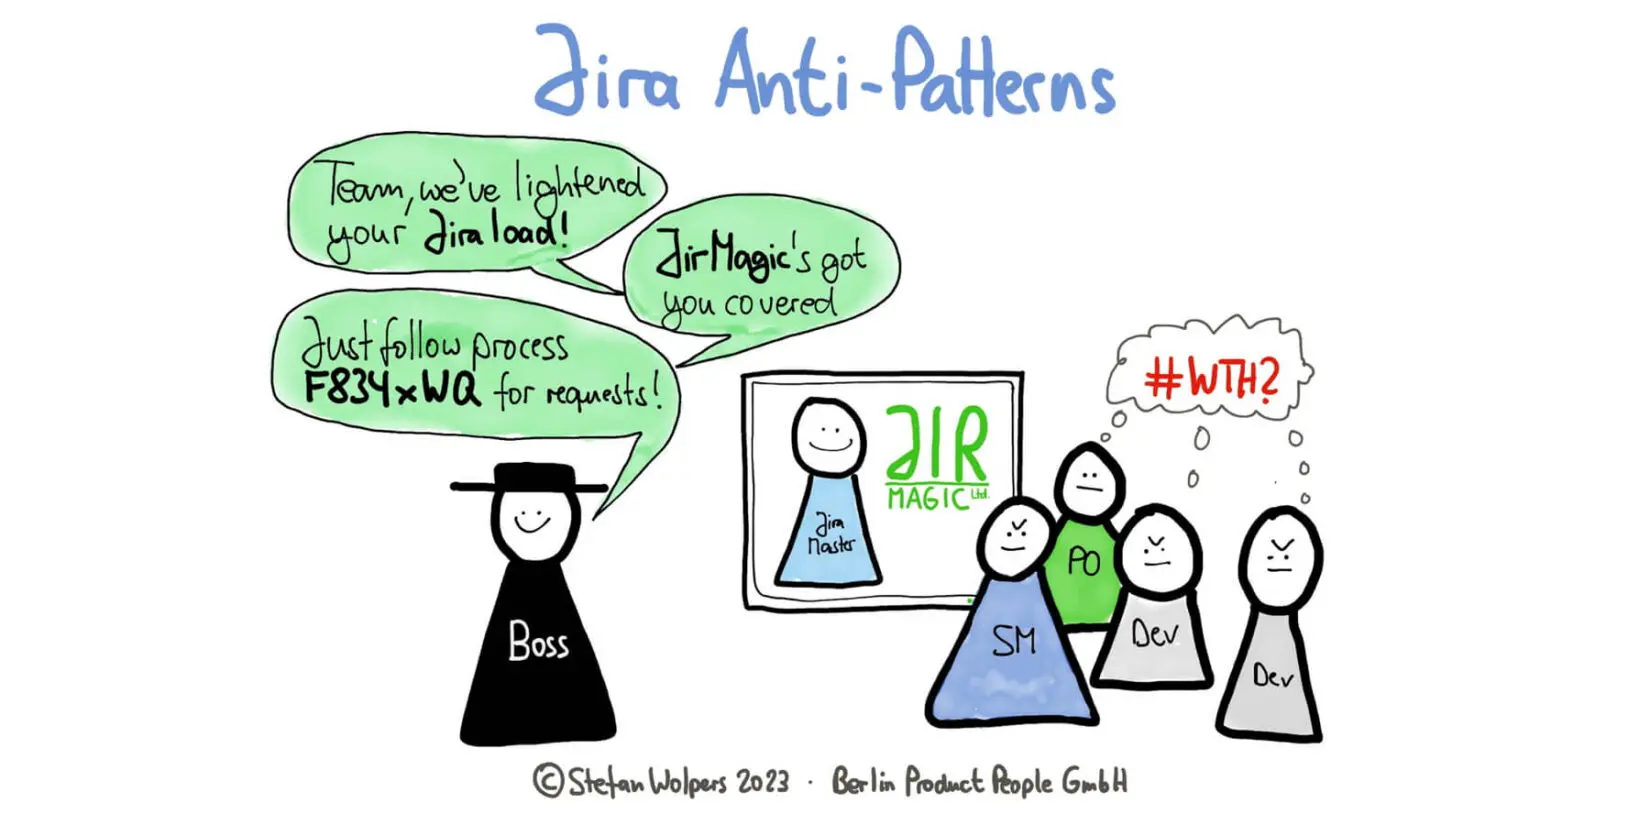 Jira Anti-Patterns
Team, we've lightened
your Jira load!
JirMagic's got
you covered
Just follow process
F834xWQ for requests!
#WTH?
JIR
MAGIC Ltd.
Jira
Master
Boss
SM
PO
Dev
Dev
© Stefan Wolpers 2023 · Berlin Product People GmbH